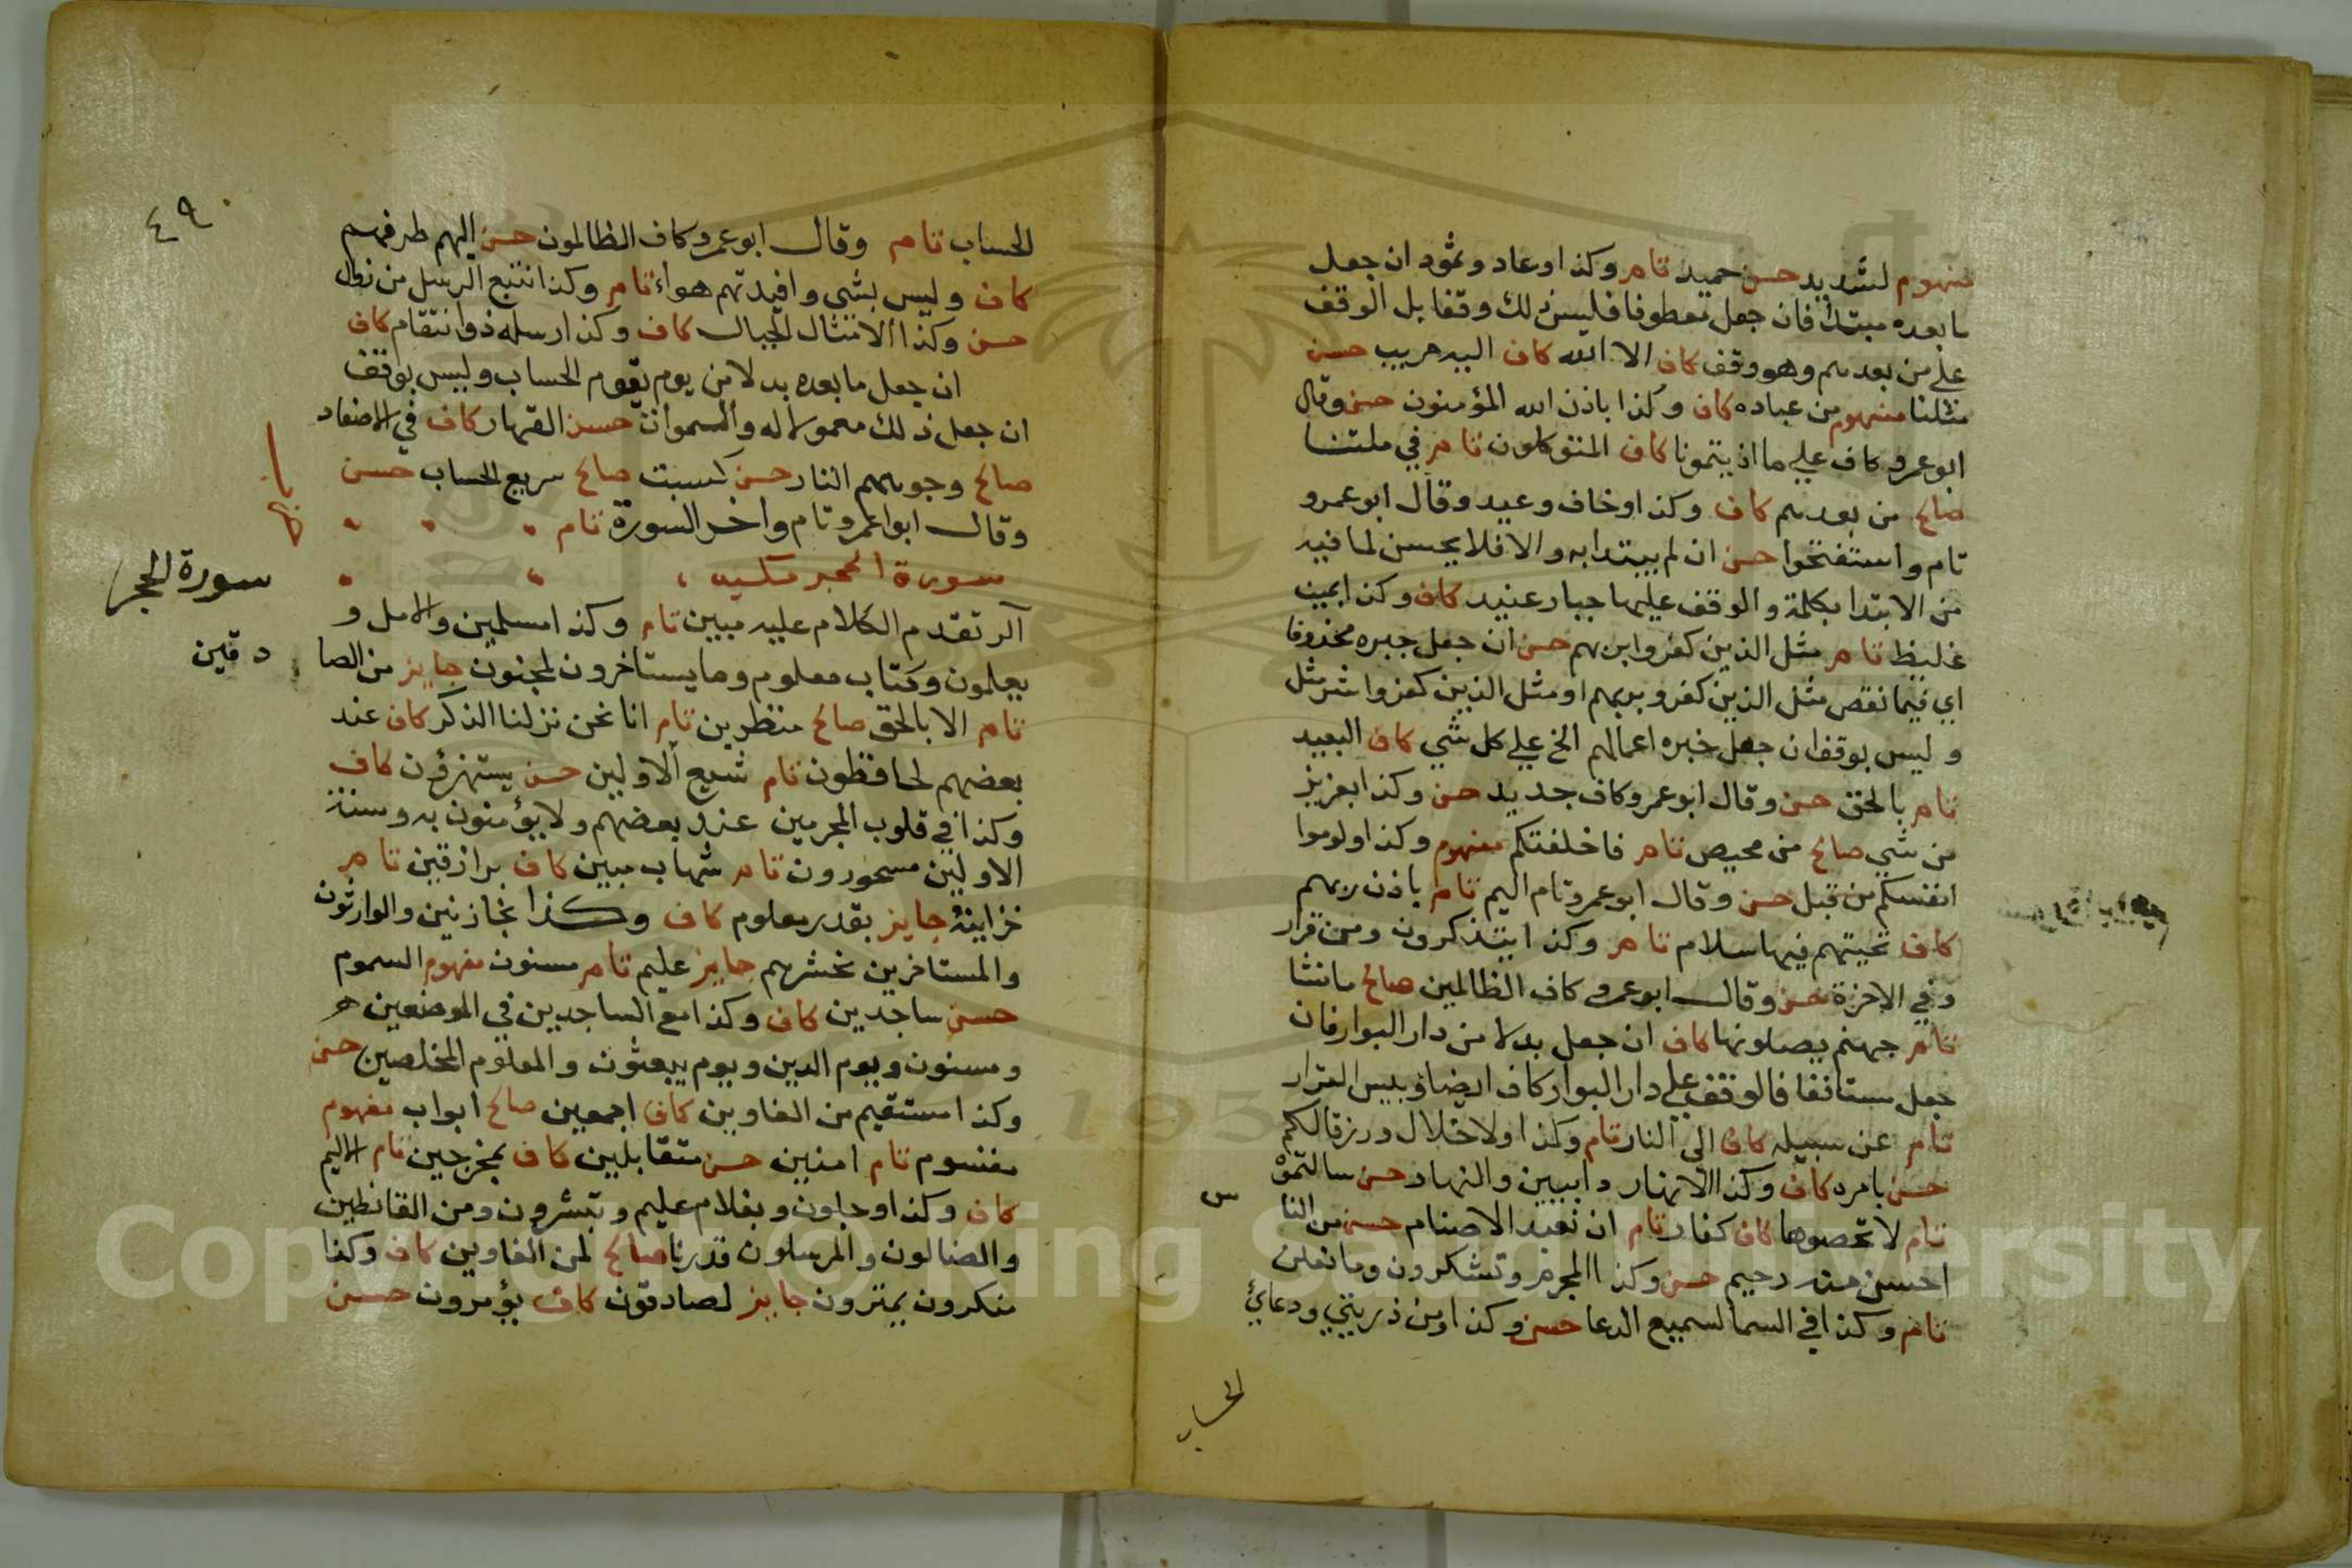 مفهوم لشديد حسن حميد تام وكذا وعاد وثمود ان جعل
ما بعده مبتدأ فان جعل معطوفا فليس ذلك وقفا بل الوقف
علي من بعدهم وهو وقف كاف الا الله كاف اليه مريب حسن
مثلنا مفهوم من عباده كاف وكذا باذن الله المؤمنون حسن وقال
ابو عمرو كاف علي ما اذيتمونا كاف المتوكلون تام في ملتنا
صالح من بعدهم كاف وكذا وخاف وعيد وقال ابو عمرو
تام واستفتحوا حسن ان لم يبتدا به والا فلا يحسن لما فيه
من الابتدا بكلمة والوقف عليها جبار عنيد كاف وكذا بميت
غليظ تام مثل الذين كفروا بربهم حسن ان جعل خبره محذوفا
اي فيما نقص مثل الذين كفروا بربهم او مثل الذين كفروا شر مثل
وليس بوقف ان جعل خبره اعمالهم الخ علي كل شي كاف البعيد
تام بالحق حسن وقال ابو عمرو كاف جديد حسن وكذا بعزيز
من شي صالح من محيص تام فاخلفتكم مفهوم وكذا ولوموا
انفسكم من قبل حسن وقال ابو عمرو تام اليم تام باذن ربهم
كاف تحيتهم فيها سلام تام وكذا يتذكرون ومن قرار
وفي الاخرة حسن وقال ابو عمرو كاف الظالمين صالح ما نشا
تام جهنم يصلونها كاف ان جعل بدلا من دار البوار فان
جعل مستانفا فالوقف علي دار البوار كاف ايضا وبيس القرار
تام عن سبيله كاف الي النار تام وكذا ولا خلال ورزقا لكم
حسن بامره كاف وكذا الانهار دايبين والنهار حسن سالتموه
تام لا تحصوها كاف كفار تام ان نعبد الاصنام حسن من النا
س
احسن منه رحيم حسن وكذا المحرم وتشكرون وما نعلن
تام وكذا في السما لسميع الدعا حسن وكذا ومن ذريتي ودعائي
الحساب
٤٩
الحساب تام وقال ابو عمرو كاف الظالمون حسن اليهم طرفهم
كاف وليس بشي وافيدتهم هواء تام وكذا نتبع الرسل من زوال
حسن وكذا الامثال الجبال كاف وكذا رسله ذوانتقام كاف
ان جعل ما بعده بدلا من يوم يقوم الحساب وليس بوقف
ان جعل ذلك معمولا له والسموات حسن القهار كاف في الاصفاد
صالح وجوههم النار حسن كسبت صالح سريع الحساب حسن
وقال ابوا عمرو تام واخر السورة تام
سورة الحجر مكيه
سورة الحجر
آلر تقدم الكلام عليه مبين تام وكذا مسلمين والامل و
يعلمون وكتاب معلوم وما يستاخرون لمجنون جايز من الصا
دقين
تام الا بالحق صالح منظرين تام انا نحن نزلنا الذكر كاف عند
بعضهم لحافظون تام شيع الاولين حسن يستهزؤن كاف
وكذا في قلوب المجرمين عند بعضهم ولا يؤمنون به وسنة
الاولين مسحورون تام شهاب مبين كاف برازقين تام
خزاينه جايز بقدر معلوم كاف وكذا بخازنين والوارثون
والمستاخرين نحشرهم جايز عليم تام مسنون مفهوم السموم
حسن ساجدين كاف وكذا مع الساجدين في الموضعين
ومسنون ويوم الدين ويوم يبعثون والمعلوم المخلصين حسن
وكذا مستقيم من الغاوين كاف اجمعين صالح ابواب مفهوم
مقسوم تام امنين حسن متقابلين كاف بمخرجين تام الاليم
كاف وكذا وجلون وبغلام عليم وتبشرون ومن القانطين
والضالون والمرسلون قدرنا صالح لمن الغاوين كاف وكذا
منكرون يمترون جايز لصادقون كاف يؤمرون حسن
Copyright © King Saud University
1957